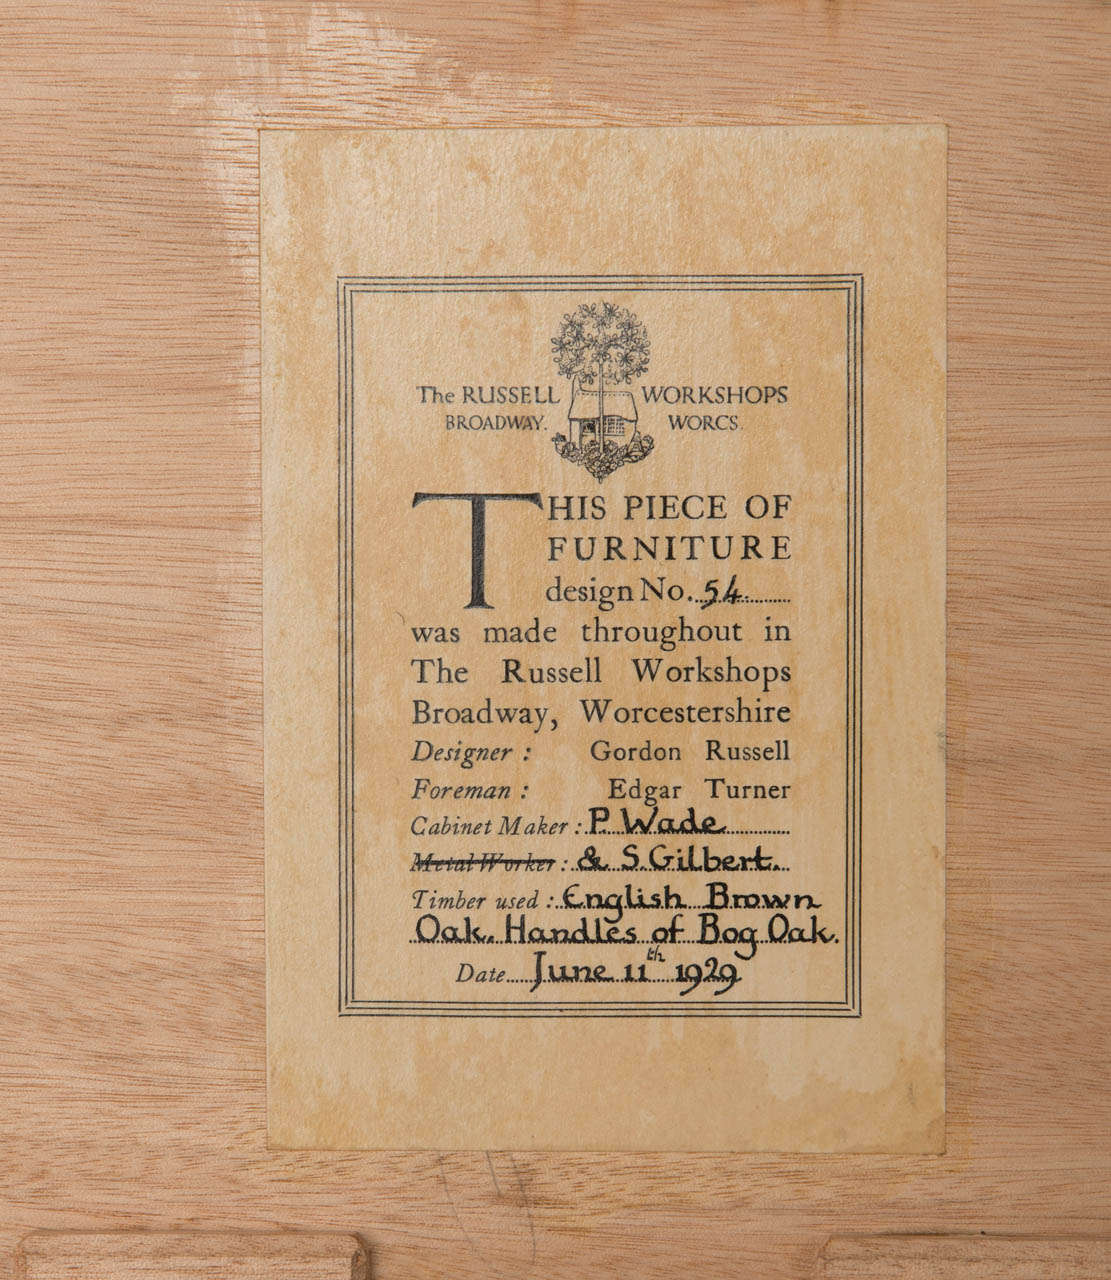 The RUSSELL WORKSHOPS
BROADWAY. WORCS.
THIS PIECE OF
FURNITURE
design No. 54
was made throughout in
The Russell Workshops
Broadway, Worcestershire
Designer : Gordon Russell
Foreman : Edgar Turner
Cabinet Maker : P. Wade
Metal Worker : & S. Gilbert.
Timber used : English Brown
Oak. Handles of Bog Oak.
Date June 11th 1929